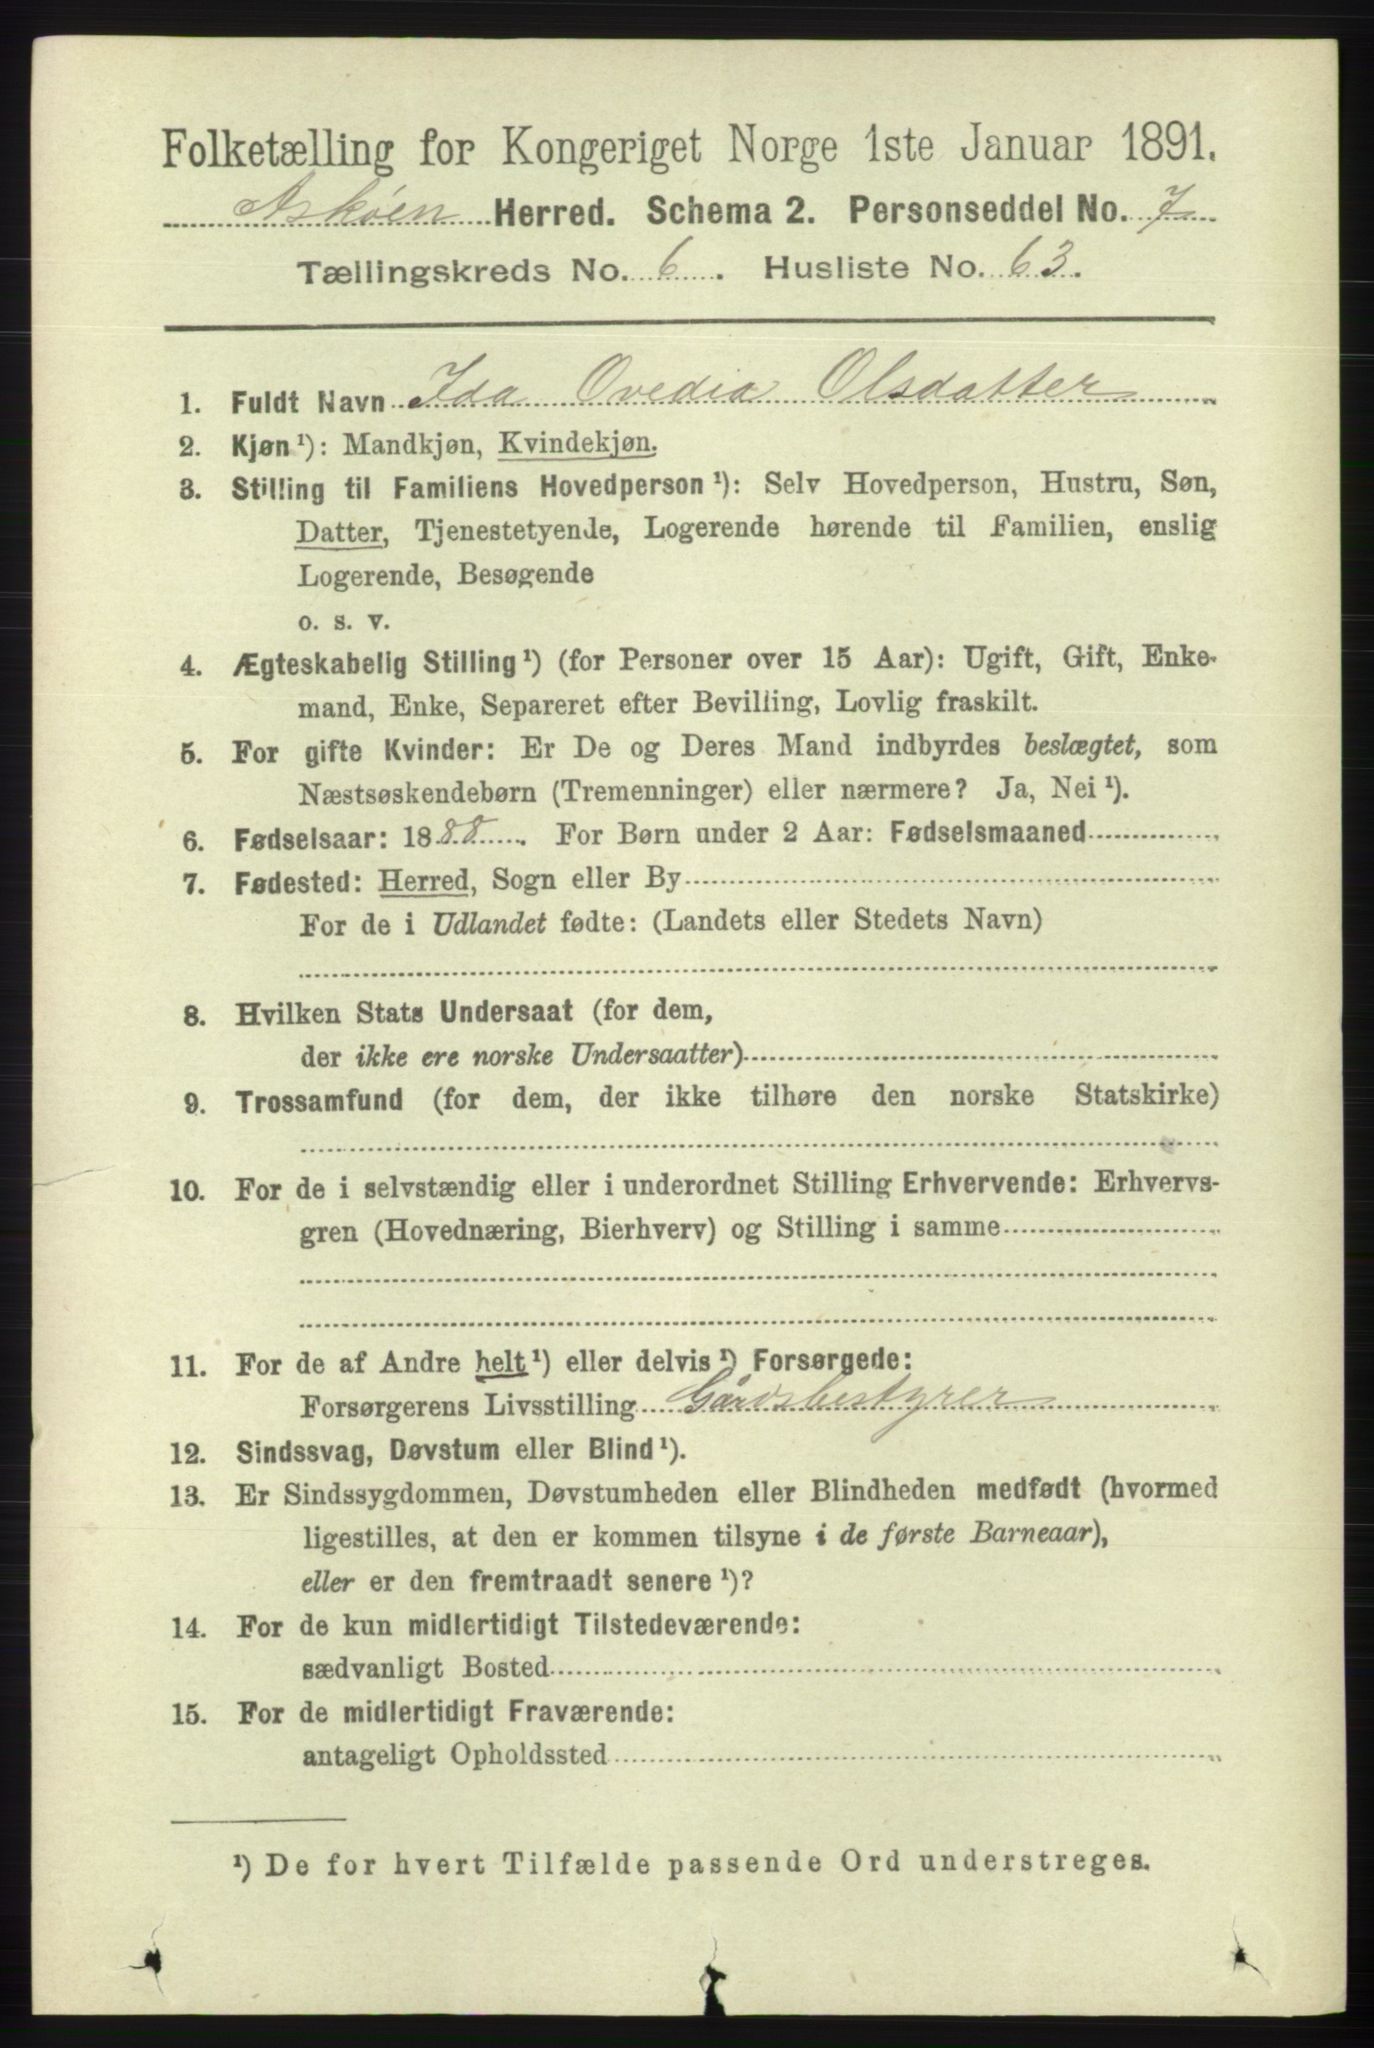 Folketælling for Kongeriget Norge 1ste Januar 1891.
Askøen Herred. Schema 2. Personseddel No. 7
Tællingskreds No. 6. Husliste No. 63.
1. Fuldt Navn Ida Ovedia Olsdatter
2. Kjøn¹): Mandkjøn, Kvindekjøn.
3. Stilling til Familiens Hovedperson¹): Selv Hovedperson, Hustru, Søn,
Datter, Tjenestetyende, Logerende hørende til Familien, enslig
Logerende, Besøgende
o. s. v.
4. Ægteskabelig Stilling¹) (for Personer over 15 Aar): Ugift, Gift, Enke-
mand, Enke, Separeret efter Bevilling, Lovlig fraskilt.
5. For gifte Kvinder: Er De og Deres Mand indbyrdes beslægtet, som
Næstsøskendebørn (Tremenninger) eller nærmere? Ja, Nei¹).
6. Fødselsaar: 1888. For Børn under 2 Aar: Fødselsmaaned
7. Fødested: Herred, Sogn eller By
For de i Udlandet fødte: (Landets eller Stedets Navn)
8. Hvilken Stats Undersaat (for dem,
der ikke ere norske Undersaatter)
9. Trossamfund (for dem, der ikke tilhøre den norske Statskirke)
10. For de i selvstændig eller i underordnet Stilling Erhvervende: Erhvervs-
gren (Hovednæring, Bierhverv) og Stilling i samme
11. For de af Andre helt¹) eller delvis¹) Forsørgede:
Forsørgerens Livsstilling Gårdsbestyrer
12. Sindssvag, Døvstum eller Blind¹).
13. Er Sindssygdommen, Døvstumheden eller Blindheden medfødt (hvormed
ligestilles, at den er kommen tilsyne i de første Barneaar),
eller er den fremtraadt senere¹)?
14. For de kun midlertidigt Tilstedeværende:
sædvanligt Bosted
15. For de midlertidigt Fraværende:
antageligt Opholdssted
¹) De for hvert Tilfælde passende Ord understreges.